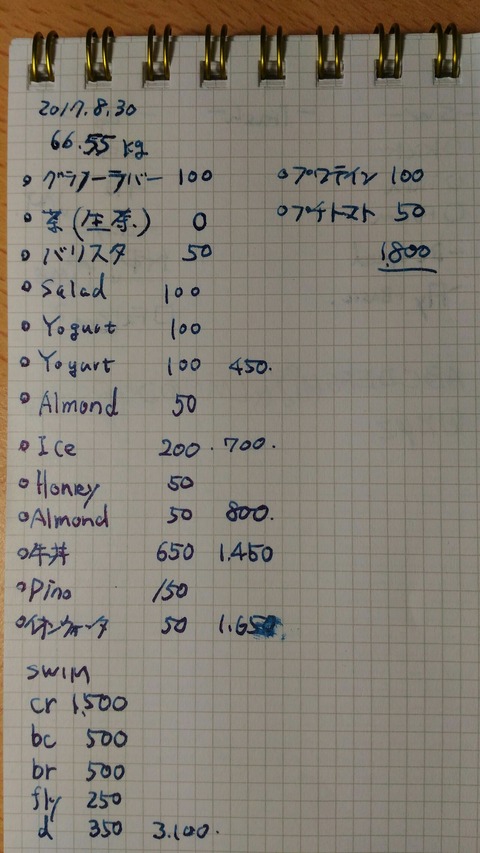 2017.8.30
66.55 kg
グラノーラバー 100
茶
0
バリスタ 50
Salad 100
Yogurt 100
Yogurt 100 450.
Almond 50
Ice 200. 700.
Honey 50
Almond 50 800.
牛丼 650 1.450
Pino 150
50 1.650
プロテイン 100
プチトマト 50
1,800
SWIM
cr 1,500
bc 500
br 500
fly 250
d 350 3.100.